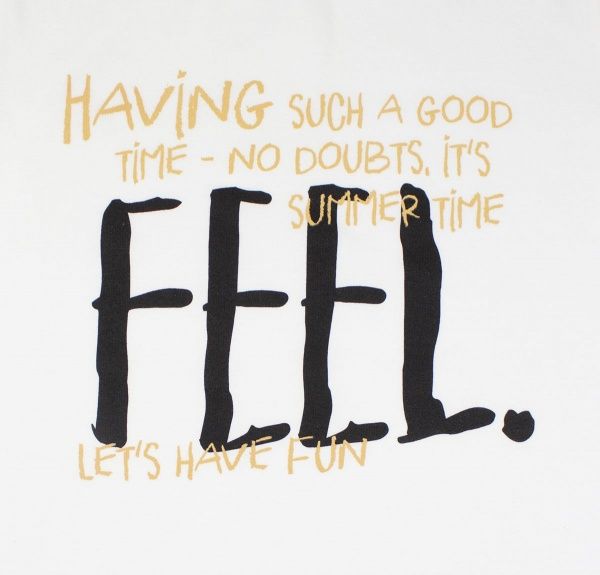 HAVING SUCH A GOOD
TIME - NO DOUBTS. IT'S
SUMMER TIME
FEEL.
LET'S HAVE FUN